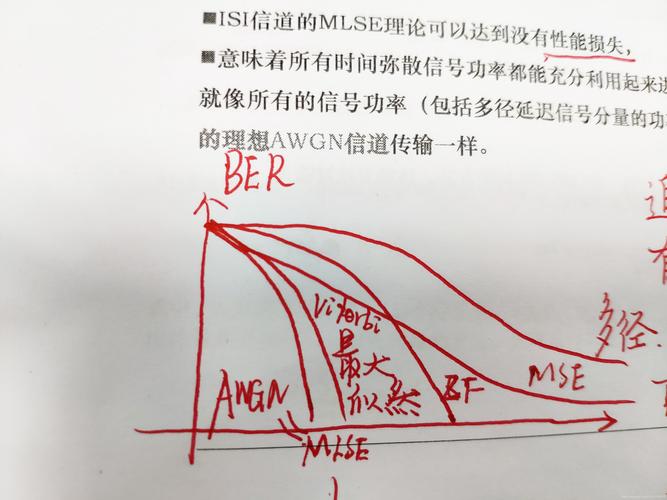 ■ISI信道的MLSE理论可以达到没有性能损失,
■意味着所有时间弥散信号功率都能充分利用起来进
就像所有的信号功率（包括多径延迟信号分量的功
的理想AWGN信道传输一样。
BER
Viterbi
是
最大
似然
多径
MSE
AWGN
MLSE